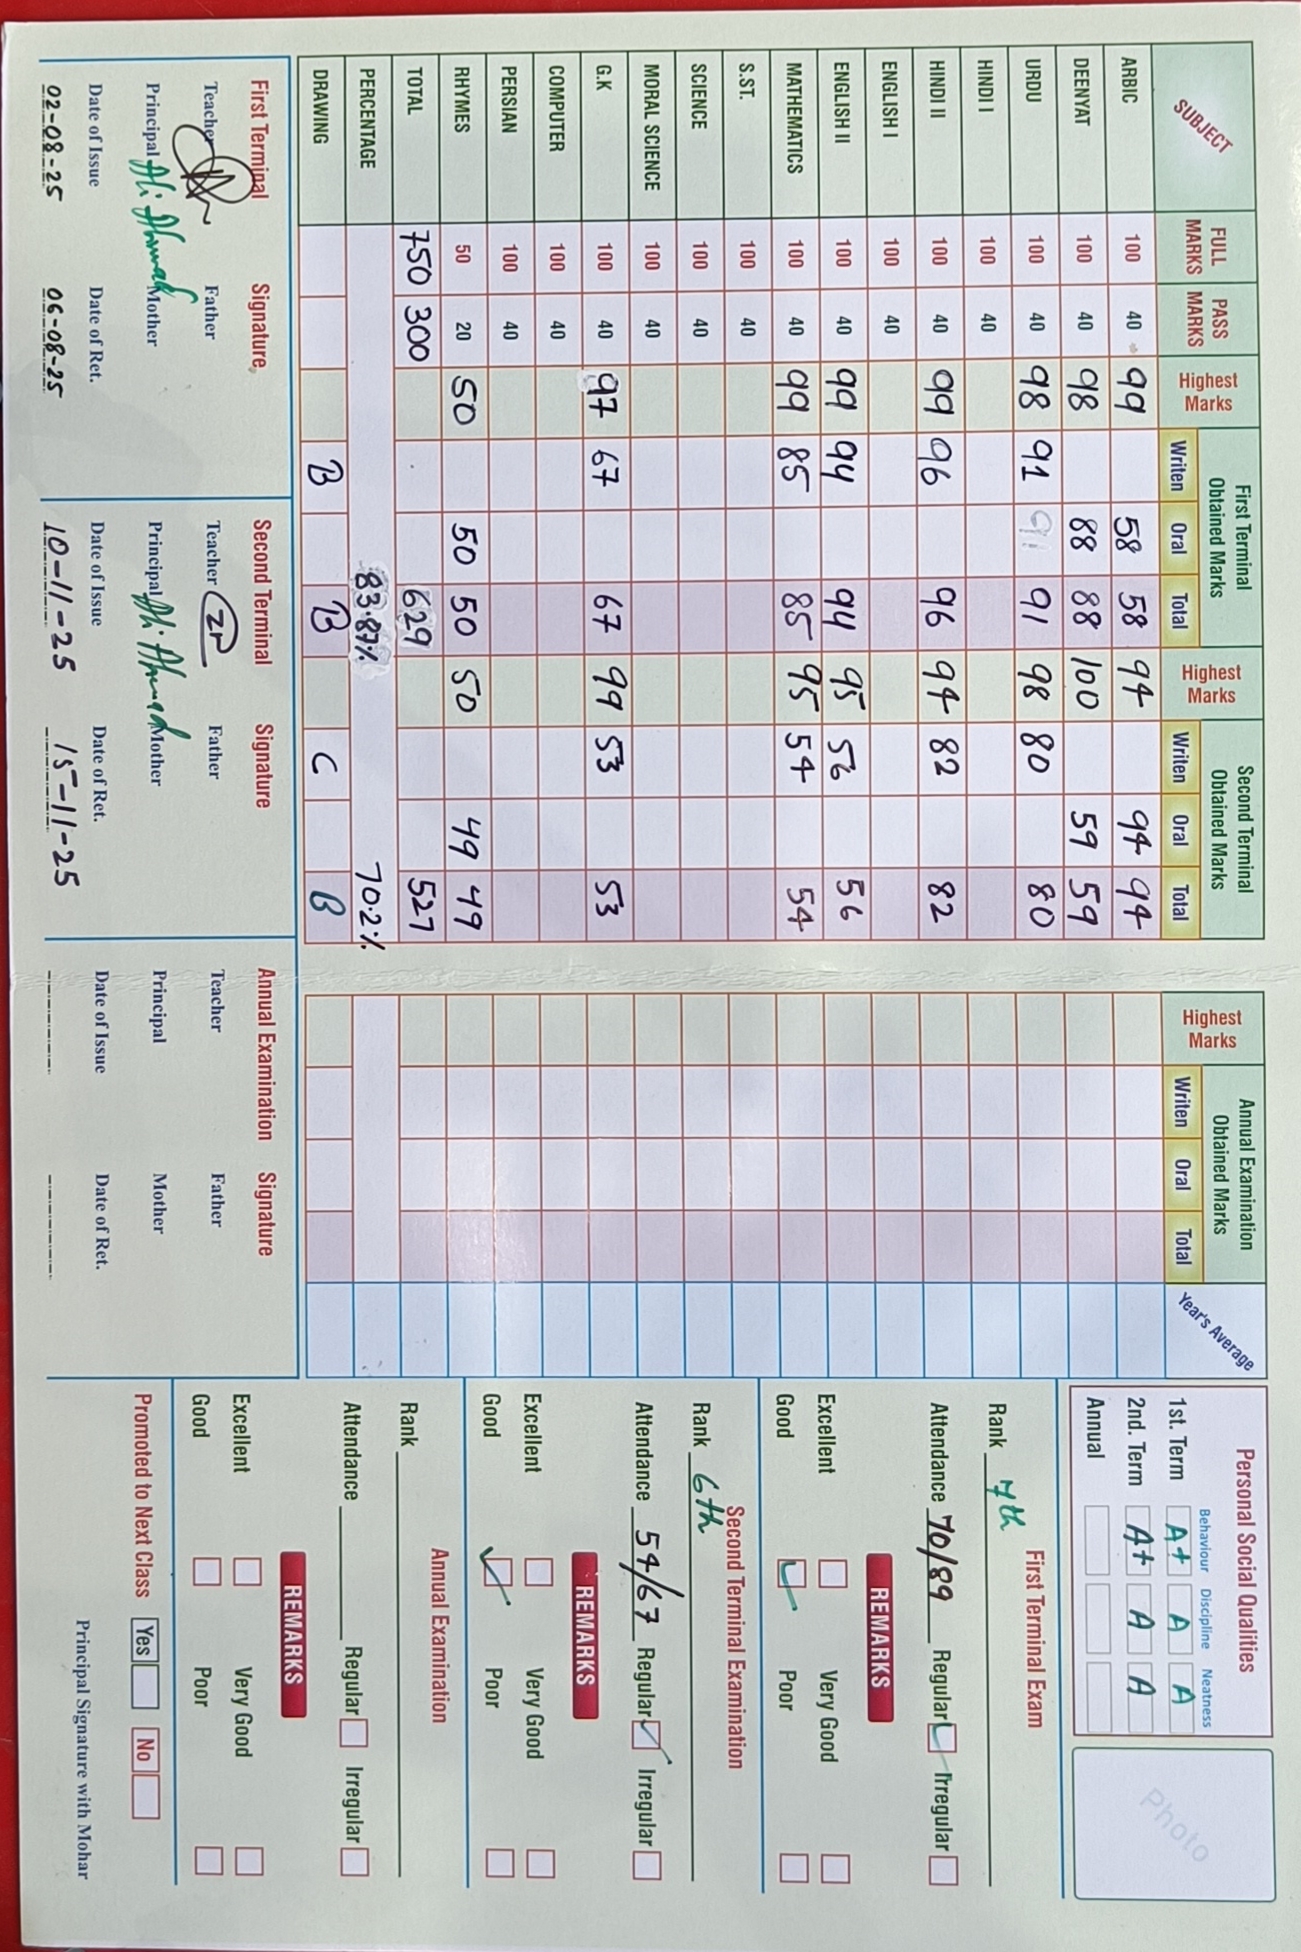 SUBJECT FULL MARKS PASS MARKS Highest Marks First Terminal Obtained Marks Writen Oral Total Highest Marks Second Terminal Obtained Marks Writen Oral Total Highest Marks Annual Examination Obtained Marks Writen Oral Total Year's Average
ARBIC 100 40 99 58 58 94 94 94
DEENYAT 100 40 98 88 88 100 59 59
URDU 100 40 98 91 91 98 80 80
HINDI I 100 40
HINDI II 100 40 99 96 96 94 82 82
ENGLISH I 100 40
ENGLISH II 100 40 99 94 94 95 56 56
MATHEMATICS 100 40 99 85 85 95 54 54
S.ST. 100 40
SCIENCE 100 40
MORAL SCIENCE 100 40
G.K 100 40 97 67 67 99 53 53
COMPUTER 100 40
PERSIAN 100 40
RHYMES 50 20 50 50 50 50 49 49
TOTAL 750 300 629 527
PERCENTAGE 83.87% 70.2%
DRAWING B B C B
First Terminal Signature
Teacher Father
Principal Ali Ahmad Mother
Date of Issue Date of Ret.
02-08-25 06-08-25
Second Terminal Signature
Teacher Father
Principal Ali Ahmad Mother
Date of Issue Date of Ret.
10-11-25 15-11-25
Annual Examination Signature
Teacher Father
Principal Mother
Date of Issue Date of Ret.
Personal Social Qualities
Behaviour Discipline Neatness
1st. Term A+ A A
2nd. Term A+ A A
Annual
Photo
First Terminal Exam
Rank 7th
Attendance 70/89 Regular Irregular
REMARKS
Excellent Very Good
Good Poor
Second Terminal Examination
Rank 6th
Attendance 54/67 Regular Irregular
REMARKS
Excellent Very Good
Good Poor
Annual Examination
Rank
Attendance Regular Irregular
REMARKS
Excellent Very Good
Good Poor
Promoted to Next Class Yes No
Principal Signature with Mohar